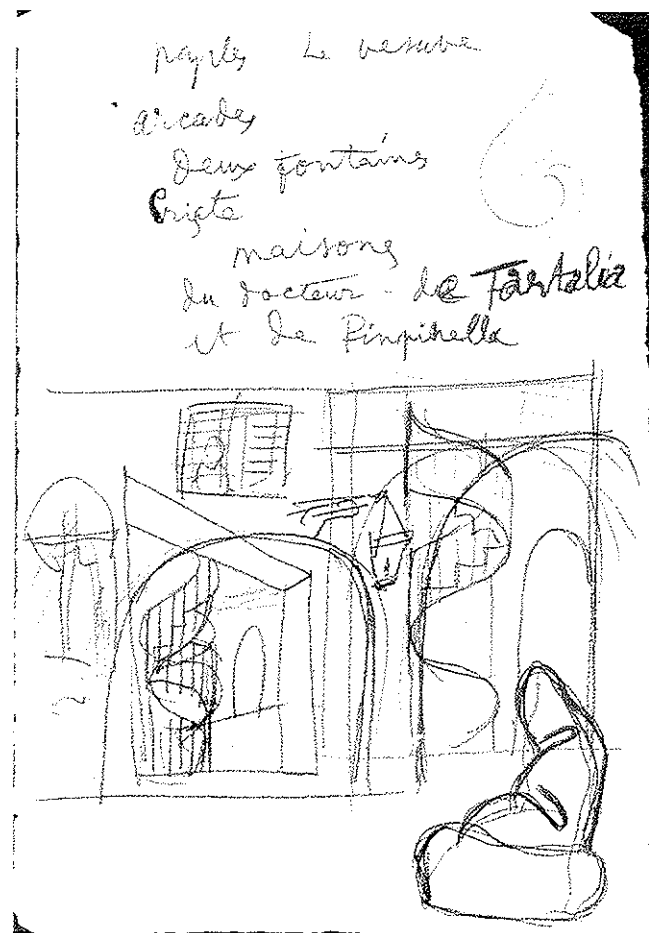 naples Le vesuve
arcades
deux fontaines
maisons
du docteur - de Tartalia
et de Pinpinella